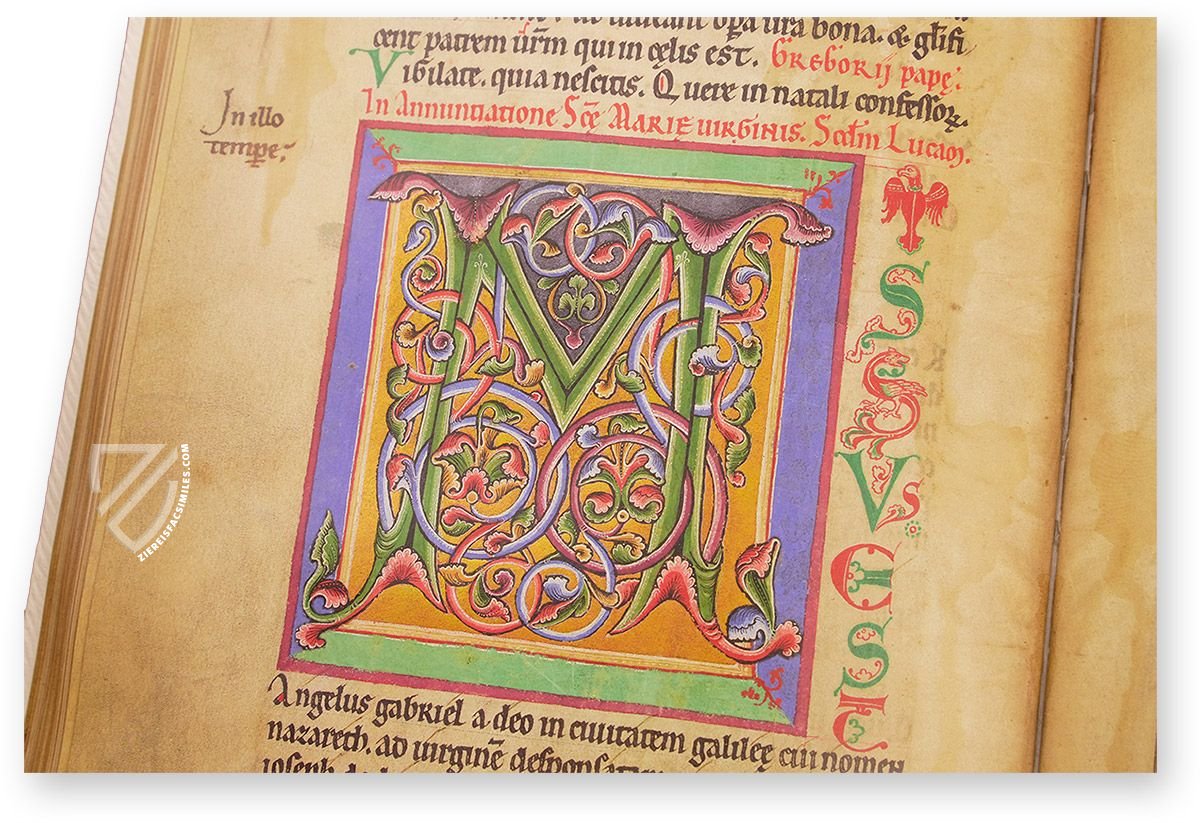 opa ura bona. & glifi
cent patrem urm qui in celis est. Gregorij pape.
Vigilate. quia nescitis. Quere in natali confessorꝝ.
In Annuntiatione Sce Marie uirginis. Scdm Lucam.
In illo
tempe.
M
ISSVS
EST
Angelus gabriel a deo in ciuitatem galilee cui nomen
nazareth. ad uirgine desponsata
ioseph. de
ZIEREISFACSIMILES.COM